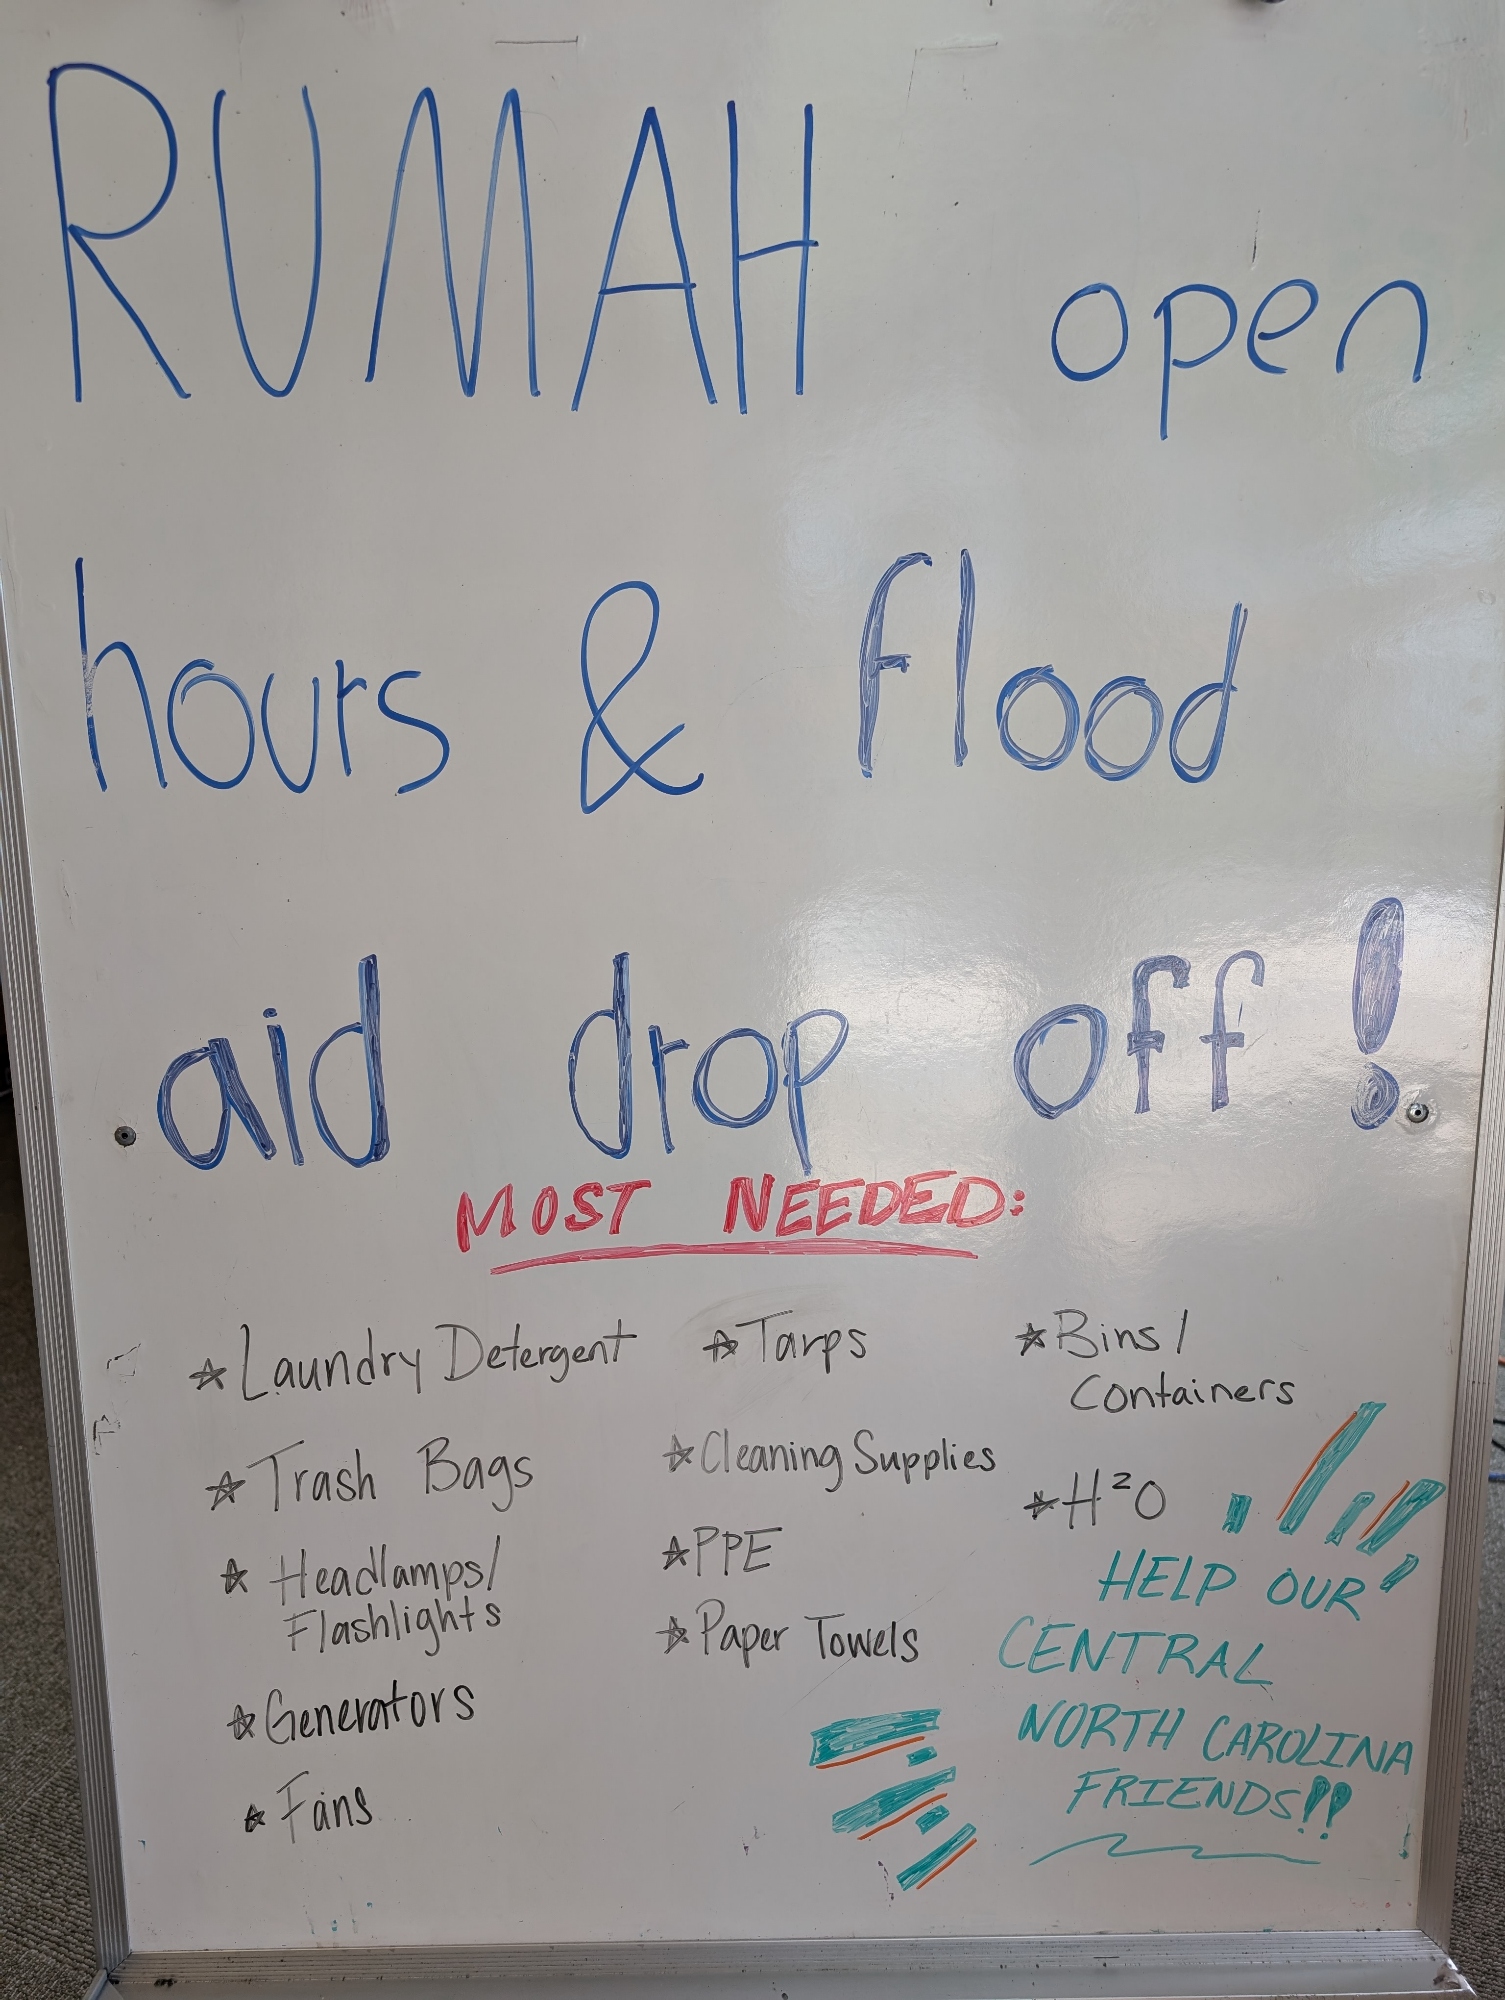 RUMAH open
hours & flood
aid drop off!
MOST NEEDED:
☆ Laundry Detergent
☆ Trash Bags
☆ Headlamps/
Flashlights
☆ Generators
☆ Fans
☆ Tarps
☆ Cleaning Supplies
☆ PPE
☆ Paper Towels
☆ Bins/
Containers
☆ H²O
HELP OUR
CENTRAL
NORTH CAROLINA
FRIENDS!!